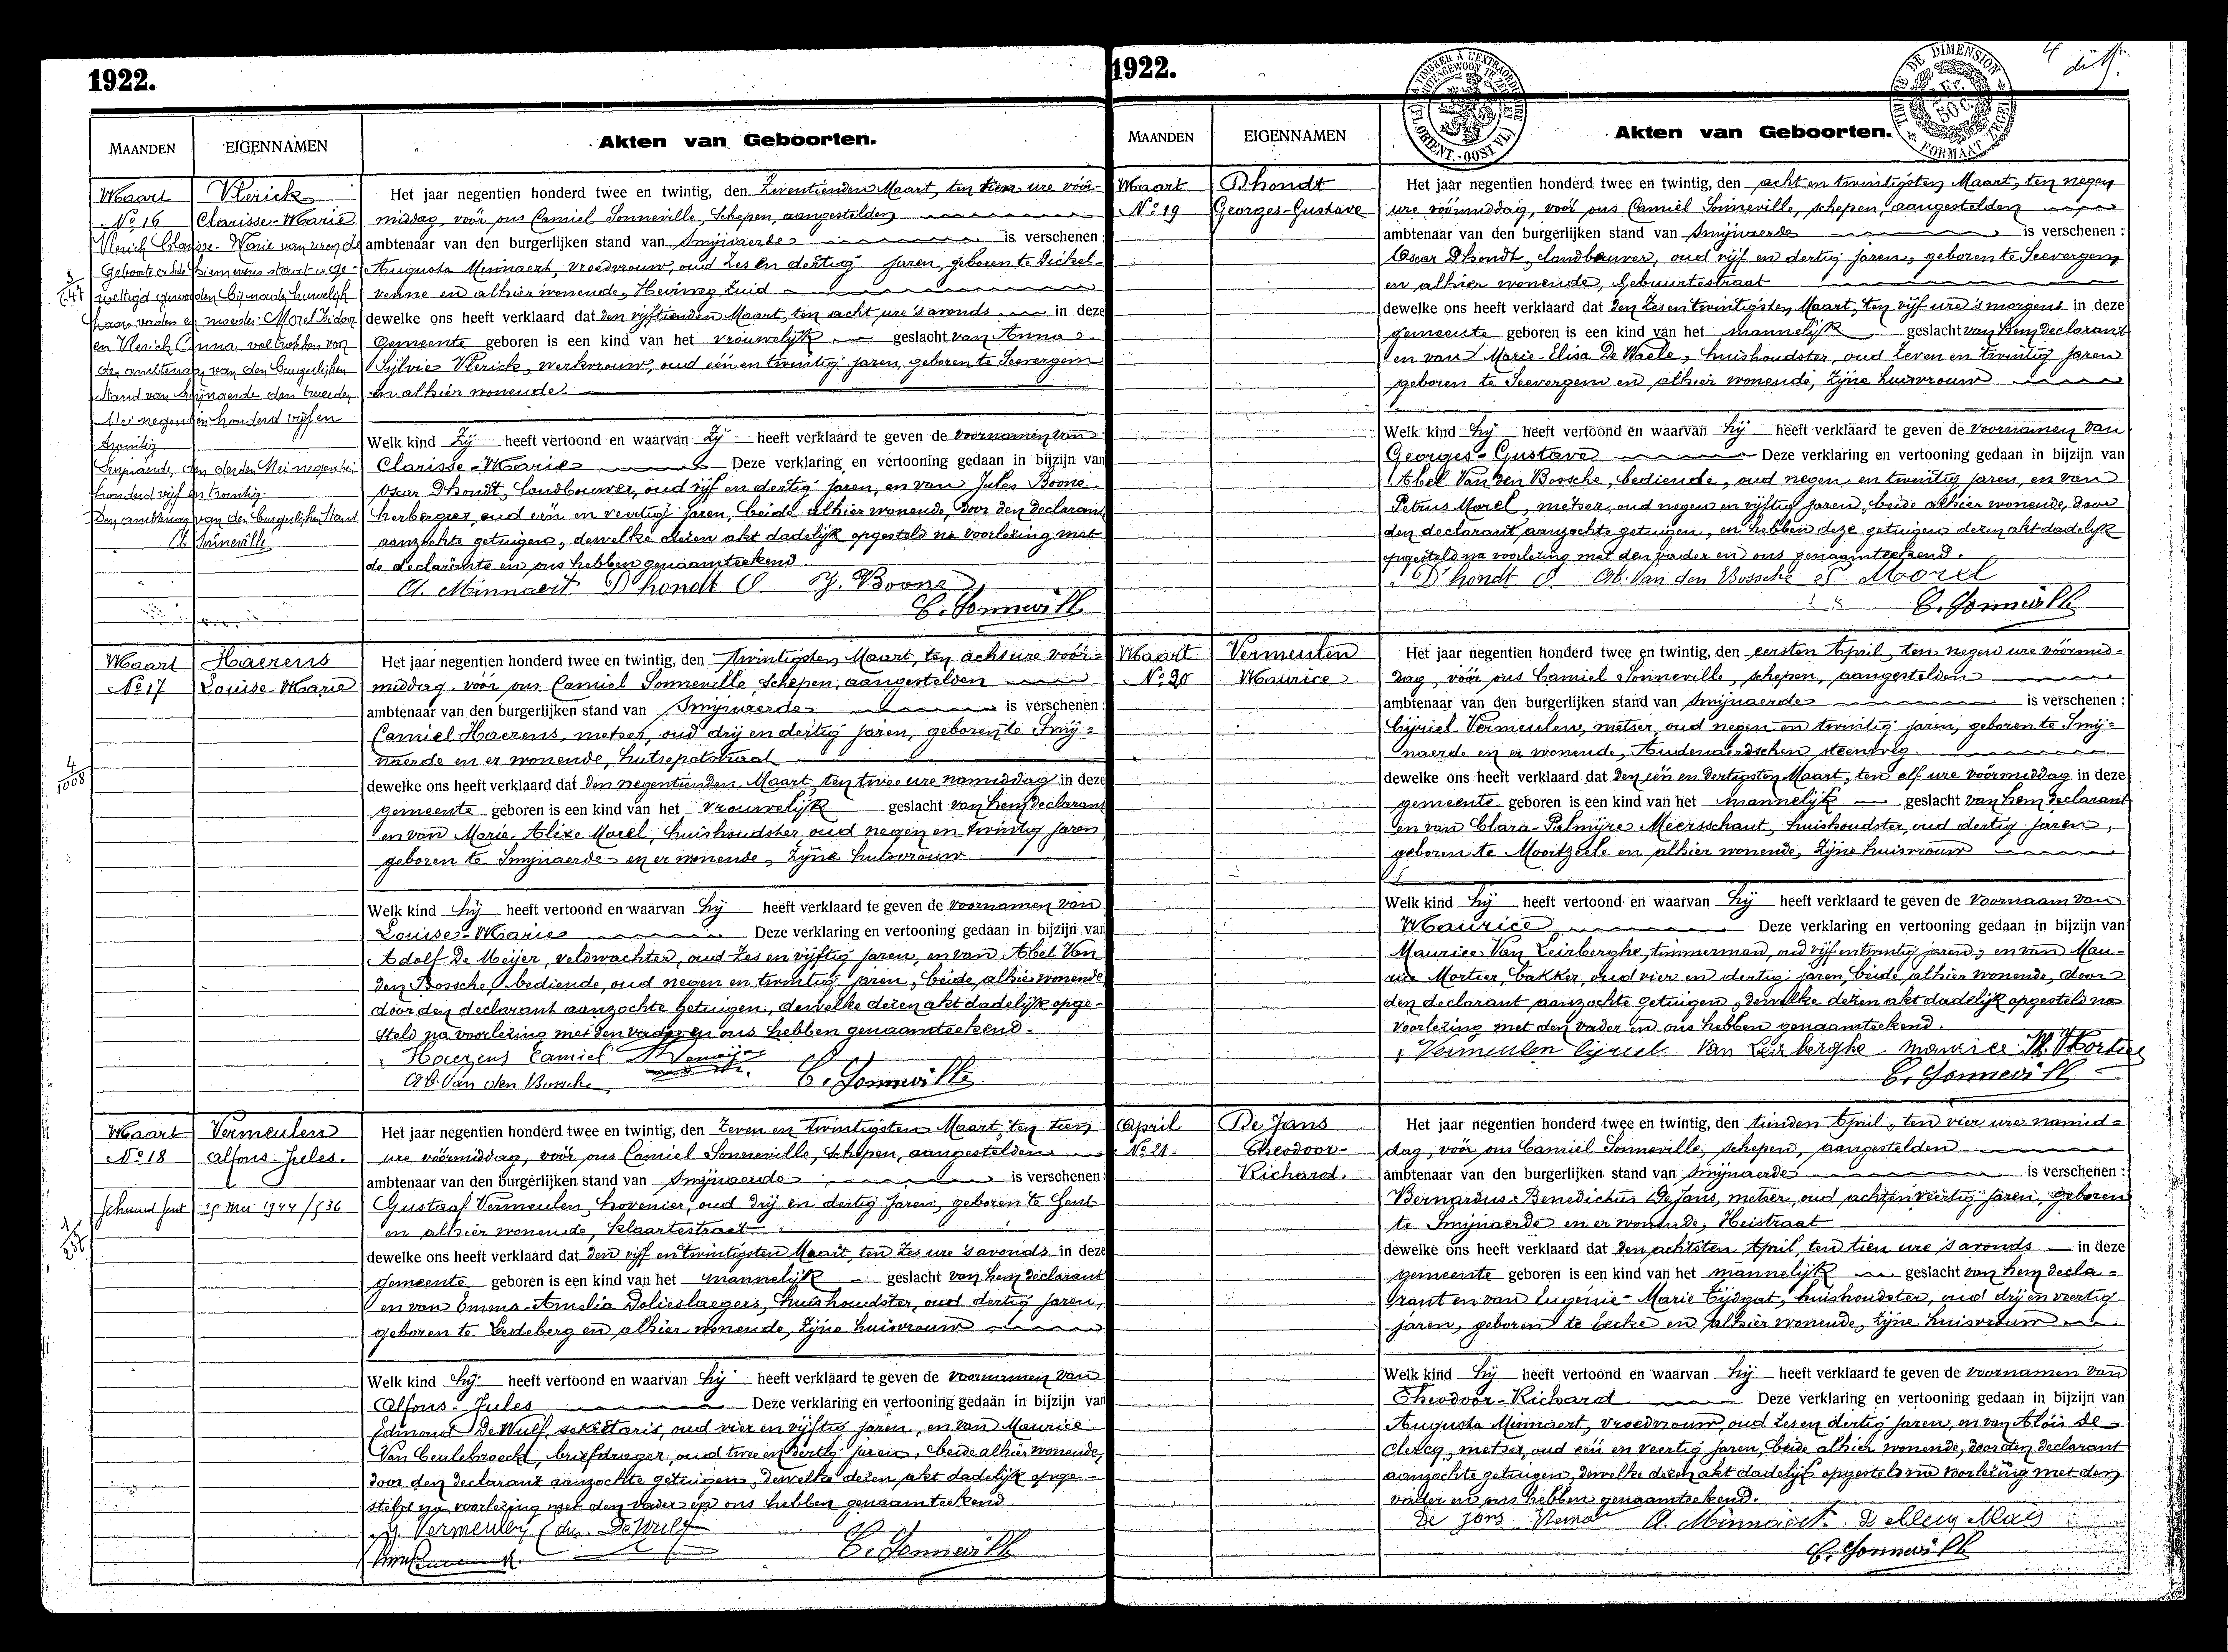 1922.
MAANDEN EIGENNAMEN Akten van Geboorten.
Maart Vlerick
No 16 Clarisse-Marie
Vlerick Clarisse-Marie van wie de
Geboorte akte hiernevens staat is ge-
wettigd geworden bij maarts huwelijk
haars vaders en moeder: Morel Isidoor
en Vlerick Anna voltrokken voor
den ambtenaar van den burgerlijken
stand van Smijnaerde den tweeden
Mei negentien honderd vijf en
twintig
Smijnaerde, den derden Mei negentien
honderd vijf en twintig.
Den ambtenaar van den burgerlijken stand
C. Sonneville
Het jaar negentien honderd twee en twintig, den zeventienden Maart, ten tien ure vóór-
middag, vóór ons Camiel Sonneville, Schepen, aangestelden
ambtenaar van den burgerlijken stand van Smijnaerde is verschenen:
Augusta Minnaert, vroedvrouw, oud zes en dertig jaren, geboren te Dickel-
venne en alhier wonende, Heiweg Zuid
dewelke ons heeft verklaard dat den vijftienden Maart, ten acht ure 's avonds in deze
gemeente geboren is een kind van het vrouwelijk geslacht van Anna
Sylvie Vlerick, werkvrouw, oud één en twintig jaren, geboren te Seevergem
en alhier wonende
Welk kind zij heeft vertoond en waarvan zij heeft verklaard te geven de voornamen van
Clarisse-Marie Deze verklaring en vertooning gedaan in bijzijn van
Oscar Dhondt, landbouwer, oud vijf en dertig jaren, en van Jules Boone
herbergier, oud één en veertig jaren, beide alhier wonende, door den declarant
aanzochte getuigen, dewelke dezen akt dadelijk opgesteld na voorlezing met
de declarante en ons hebben genaamteekend.
A. Minnaert D'hondt O. J. Boone
C. Sonneville
Maart Haerens
No 17 Louise-Marie
4/1008
Het jaar negentien honderd twee en twintig, den twintigsten Maart, ten acht ure vóór-
middag, vóór ons Camiel Sonneville, Schepen, aangestelden
ambtenaar van den burgerlijken stand van Smijnaerde is verschenen:
Camiel Haerens, metser, oud drij en dertig jaren, geboren te Smij-
naerde en er wonende, hutsepotstraat
dewelke ons heeft verklaard dat den negentienden Maart, ten twee ure namiddag in deze
gemeente geboren is een kind van het vrouwelijk geslacht van hem declarant
en van Marie-Alixe Morel, huishoudster, oud negen en twintig jaren
geboren te Smijnaerde en er wonende, zijne huisvrouw
Welk kind hij heeft vertoond en waarvan hij heeft verklaard te geven de voornamen van
Louise-Marie Deze verklaring en vertooning gedaan in bijzijn van
Adolf De Meijer, veldwachter, oud zes en vijftig jaren, en van Abel Van
den Bossche, bediende, oud negen en twintig jaren, beide alhier wonende
door den declarant aanzochte getuigen, dewelke dezen akt dadelijk opge-
steld na voorlezing met den vader en ons hebben genaamteekend.
Haerens Camiel
Ab. Van den Bossche C. Sonneville
Maart Vermeulen
No 18 Alfons-Jules.
Gent 25 mei 1944 / 536
Het jaar negentien honderd twee en twintig, den zeven en twintigsten Maart, ten tien
ure vóórmiddag, vóór ons Camiel Sonneville, Schepen, aangestelden
ambtenaar van den burgerlijken stand van Smijnaerde is verschenen:
Gustaaf Vermeulen, hovenier, oud drij en dertig jaren, geboren te Gent
en alhier wonende, klaartestraat
dewelke ons heeft verklaard dat den vijf en twintigsten Maart, ten zes ure 's avonds in deze
gemeente geboren is een kind van het mannelijk geslacht van hem declarant
en van Emma-Amelia Delieslaegers, huishoudster, oud dertig jaren,
geboren te Ledeberg en alhier wonende, zijne huisvrouw
Welk kind hij heeft vertoond en waarvan hij heeft verklaard te geven de voornamen van
Alfons-Jules Deze verklaring en vertooning gedaan in bijzijn van
Edmond DeWulf, sekretaris, oud vier en vijftig jaren, en van Maurice
Van Ceulebroeck, briefdrager, oud twee en dertig jaren, beide alhier wonende,
door den declarant aanzochte getuigen, dewelke dezen akt dadelijk opge-
steld na voorlezing met den vader en ons hebben genaamteekend
G. Vermeulen Edm. DeWulf
C. Sonneville
1922.
MAANDEN EIGENNAMEN Akten van Geboorten.
Maart Dhondt
No 19 Georges-Gustave
Het jaar negentien honderd twee en twintig, den acht en twintigsten Maart, ten negen
ure vóórmiddag, vóór ons Camiel Sonneville, schepen, aangestelden
ambtenaar van den burgerlijken stand van Smijnaerde is verschenen:
Oscar Dhondt, landbouwer, oud vijf en dertig jaren, geboren te Seevergem
en alhier wonende, Gebuurtestraat
dewelke ons heeft verklaard dat den zes en twintigsten Maart, ten vijf ure 's morgens in deze
gemeente geboren is een kind van het mannelijk geslacht van hem declarant
en van Marie-Elisa De Waele, huishoudster, oud zeven en twintig jaren
geboren te Seevergem en alhier wonende, zijne huisvrouw
Welk kind hij heeft vertoond en waarvan hij heeft verklaard te geven de voornamen van
Georges-Gustave Deze verklaring en vertooning gedaan in bijzijn van
Abel Van den Bossche, bediende, oud negen en twintig jaren, en van
Petrus Morel, metser, oud negen en vijftig jaren, beide alhier wonende, door
den declarant aanzochte getuigen, en hebben deze getuigen dezen akt dadelijk
opgesteld na voorlezing met den vader en ons genaamteekend.
D'hondt O. Ab. Van den Bossche P. Morel
C. Sonneville
Maart Vermeulen
No 20 Maurice
Het jaar negentien honderd twee en twintig, den eersten April, ten negen ure vóórmid-
dag, vóór ons Camiel Sonneville, schepen, aangestelden
ambtenaar van den burgerlijken stand van Smijnaerde is verschenen:
Cijriel Vermeulen, metser, oud negen en twintig jaren, geboren te Smij-
naerde en er wonende, Audenaerdschen steenweg
dewelke ons heeft verklaard dat den één en dertigsten Maart, ten elf ure vóórmiddag in deze
gemeente geboren is een kind van het mannelijk geslacht van hem declarant
en van Clara-Palmijre Meersschaut, huishoudster, oud dertig jaren,
geboren te Moortzeele en alhier wonende, zijne huisvrouw
Welk kind hij heeft vertoond en waarvan hij heeft verklaard te geven de voornaam van
Maurice Deze verklaring en vertooning gedaan in bijzijn van
Maurice Van Leirberghe, timmerman, oud vijf en twintig jaren, en van Mau-
rice Mortier, bakker, oud vier en dertig jaren, beide alhier wonende, door
den declarant aanzochte getuigen, dewelke dezen akt dadelijk opgesteld na
voorlezing met den vader en ons hebben genaamteekend.
Vermeulen Cijriel Van Leirberghe Maurice M. Mortier
C. Sonneville
April De Jans
No 21. Theodoor-
Richard.
Het jaar negentien honderd twee en twintig, den tienden April, ten vier ure namid-
dag, vóór ons Camiel Sonneville, schepen, aangestelden
ambtenaar van den burgerlijken stand van Smijnaerde is verschenen:
Bernardus-Benedictus De Jans, metser, oud acht en veertig jaren, geboren
te Smijnaerde en er wonende, Heistraat
dewelke ons heeft verklaard dat den achtsten April, ten tien ure 's avonds in deze
gemeente geboren is een kind van het mannelijk geslacht van hem decla-
rant en van Eugénie-Marie Cijsgat, huishoudster, oud drij en veertig
jaren, geboren te Eecke en alhier wonende, zijne huisvrouw
Welk kind hij heeft vertoond en waarvan hij heeft verklaard te geven de voornamen van
Theodoor-Richard Deze verklaring en vertooning gedaan in bijzijn van
Augusta Minnaert, vroedvrouw, oud zes en dertig jaren, en van Aloïs De
Clercq, metser, oud één en veertig jaren, beide alhier wonende, door den declarant
aanzochte getuigen, dewelke dezen akt dadelijk opgesteld na voorlezing met den
vader en ons hebben genaamteekend.
De Jans A. Minnaert
C. Sonneville